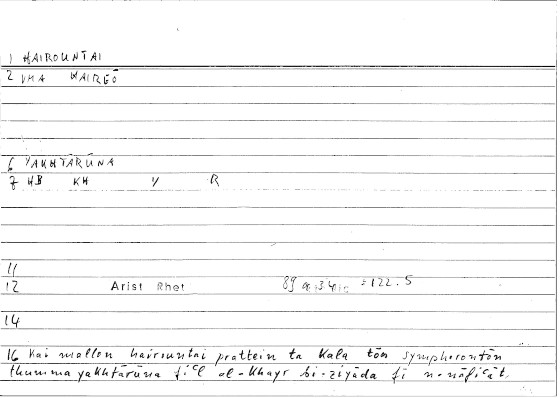 1 HAIROUNTAI
2 VMA HAIREŌ
6 YAKHTĀRŪNA
7 HB KH Y R
11
12 Arist Rhet 89 = 122.5
14
16 kai mallon hairountai prattein ta kala tōn sympherontōn
thumma yakhtārūna fiʿl al-khayr bi-ziyāda fī n-nāfiʿāt.